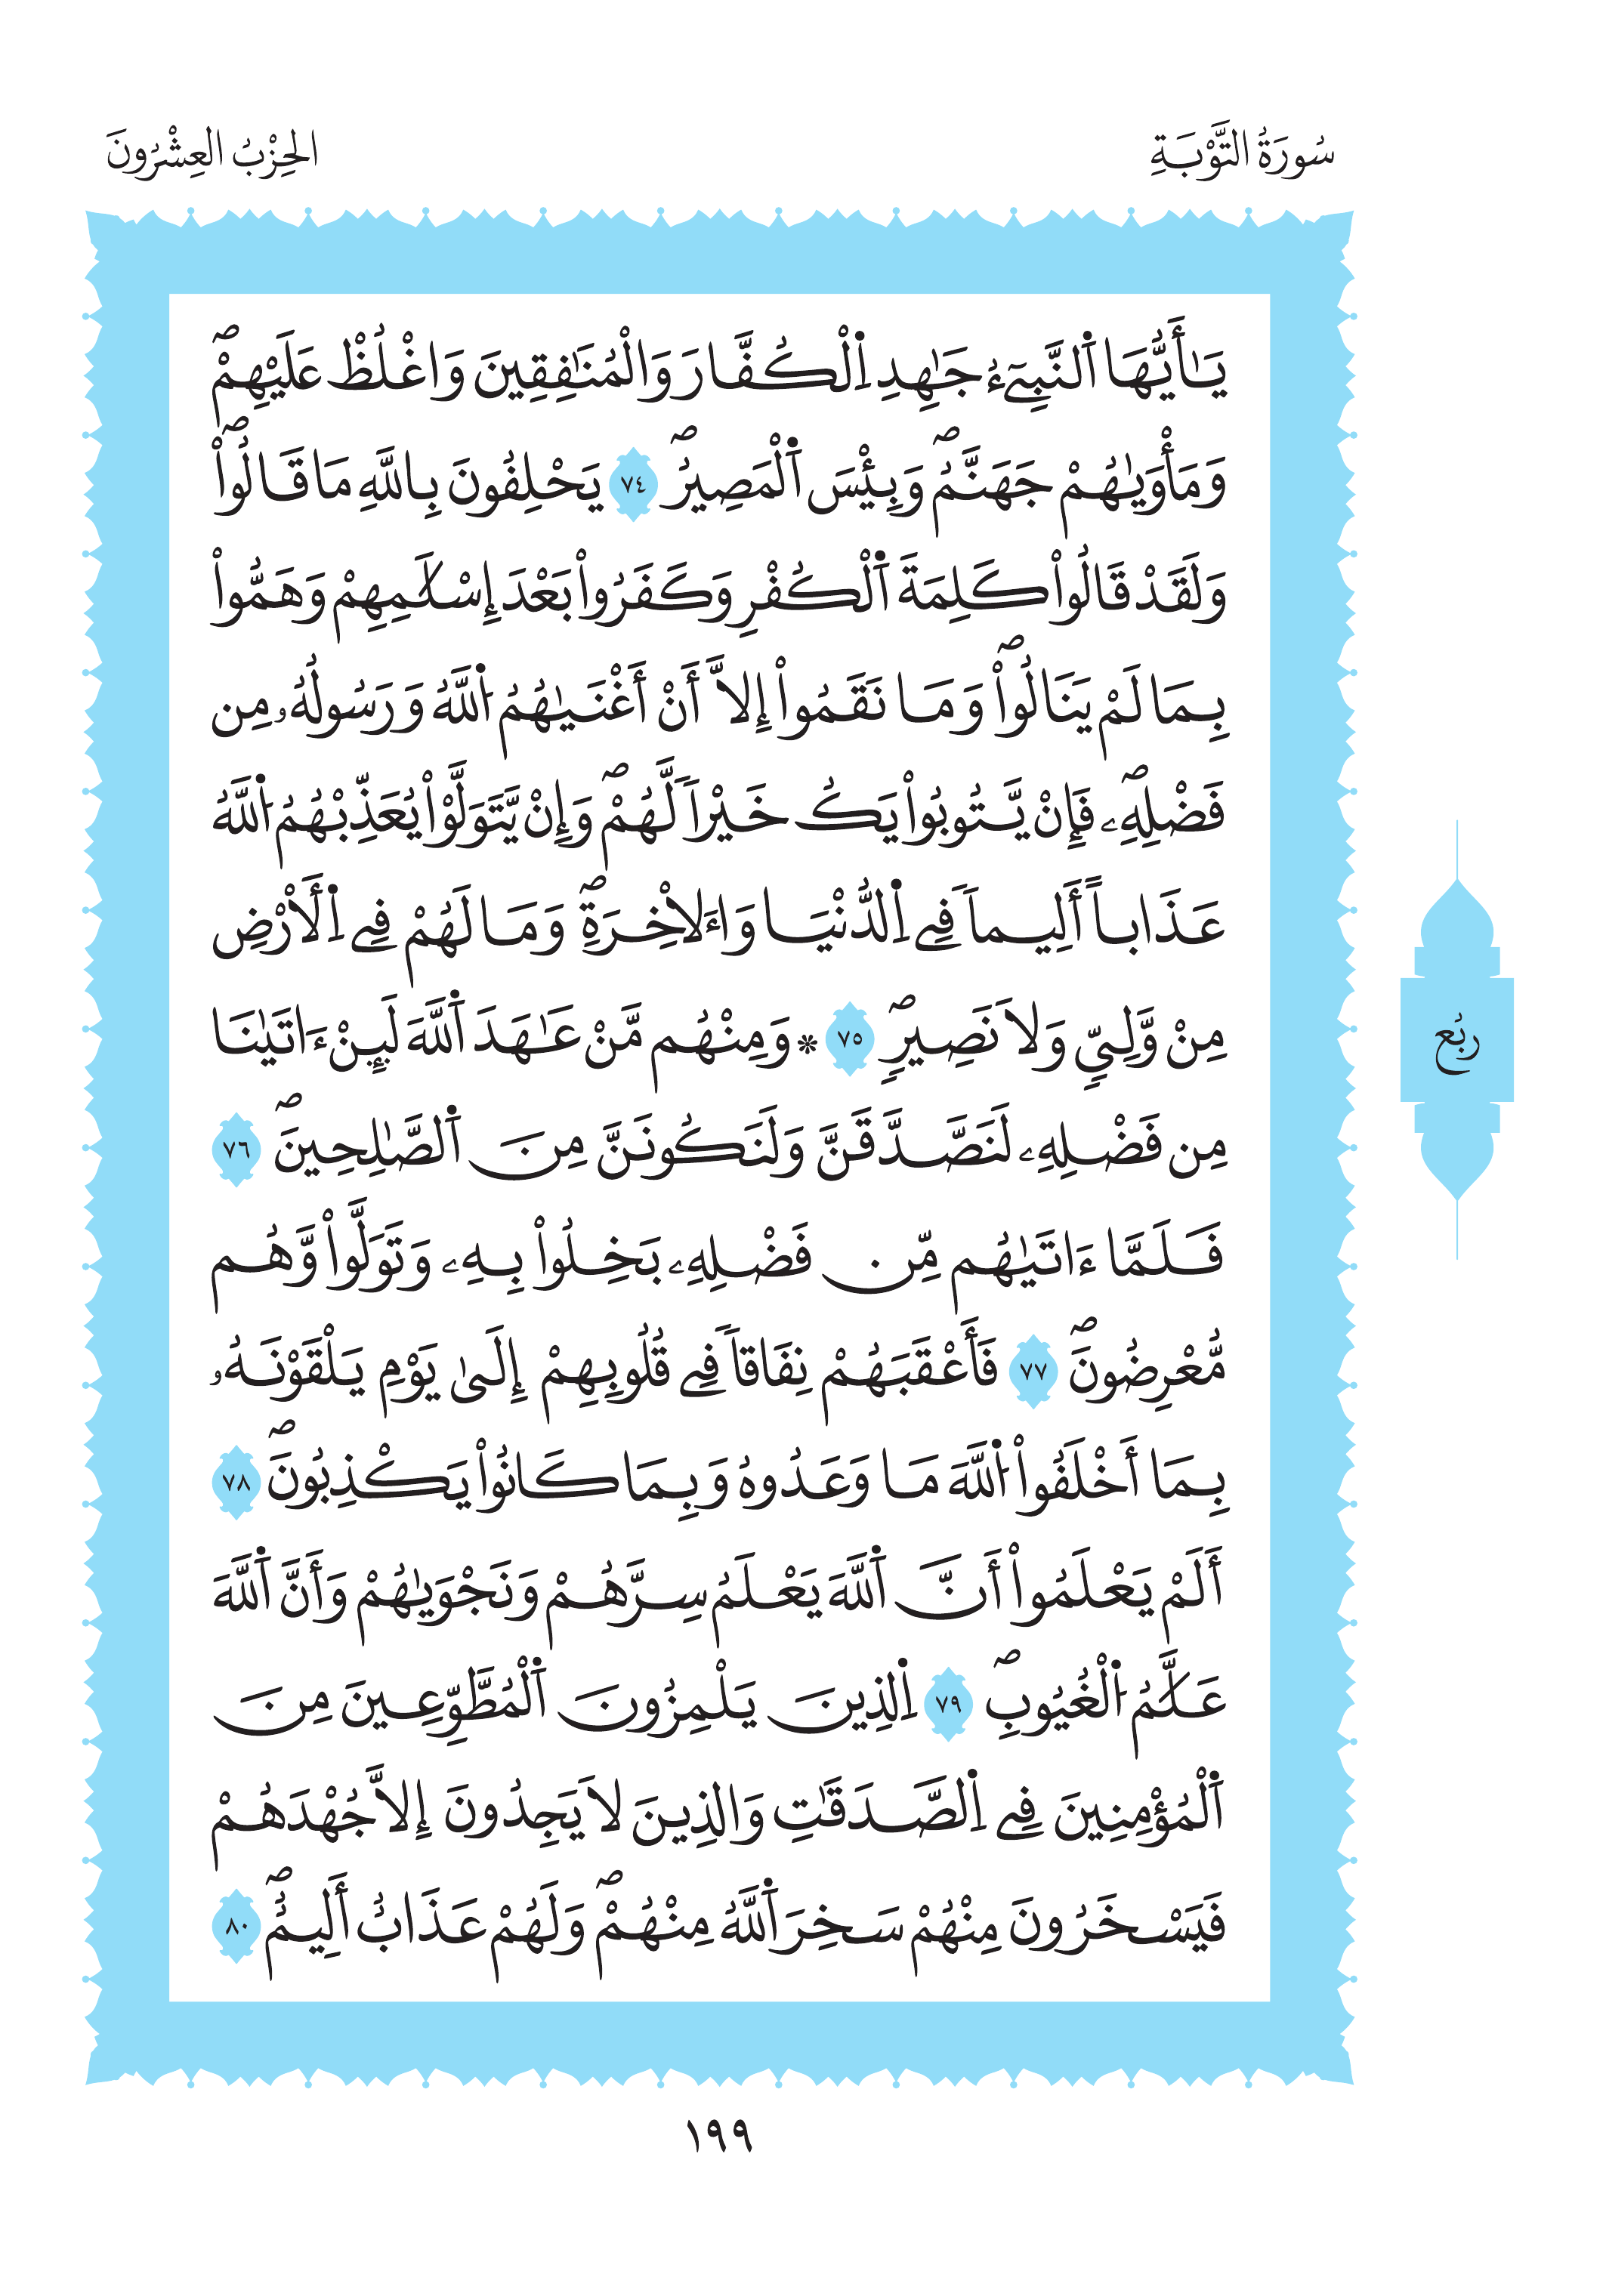 سُورَةُ التَّوْبَةِ
الحِزْبُ العِشْرُونَ
يَٰأَيُّهَا اَ۬لنَّبِےٓءُ جَٰهِدِ اِ۬لْكُفَّارَ وَالْمُنَٰفِقِينَ وَاغْلُظْ عَلَيْهِمْۖ
وَمَأْوَيٰهُمْ جَهَنَّمُۖ وَبِئْسَ اَ۬لْمَصِيرُۖ ٧٤ يَحْلِفُونَ بِاللَّهِ مَا قَالُواْۖ
وَلَقَدْ قَالُواْ كَلِمَةَ اَ۬لْكُفْرِ وَكَفَرُواْ بَعْدَ إِسْلَٰمِهِمْ وَهَمُّواْ
بِمَا لَمْ يَنَالُواْۖ وَمَا نَقَمُواْ إِلَّا أَنْ أَغْنَيٰهُمُ اُ۬للَّهُ وَرَسُولُهُۥ مِن
فَضْلِهِۦۖ فَإِنْ يَّتُوبُواْ يَكُ خَيْراٗ لَّهُمْۖ وَإِنْ يَّتَوَلَّوْاْ يُعَذِّبْهُمُ اُ۬للَّهُ
عَذَاباً أَلِيماٗ فِے اِ۬لدُّنْيَا وَالَٰخِرَةِۖ وَمَا لَهُمْ فِے اِ۬لَارْضِ
مِنْ وَّلِيّٖ وَلَا نَصِيرٖۖ ٧٥ * وَمِنْهُم مَّنْ عَٰهَدَ اَ۬للَّهَ لَئِنْ ءَاتَيٰنَا
مِن فَضْلِهِۦ لَنَصَّدَّقَنَّ وَلَنَكُونَنَّ مِنَ اَ۬لصَّٰلِحِينَۖ ٧٦
فَلَمَّا ءَاتَيٰهُم مِّن فَضْلِهِۦ بَخِلُواْ بِهِۦ وَتَوَلَّواْ وَّهُم
مُّعْرِضُونَۖ ٧٧ فَأَعْقَبَهُمْ نِفَاقاٗ فِے قُلُوبِهِمْ إِلَىٰ يَوْمِ يَلْقَوْنَهُۥ
بِمَا أَخْلَفُواْ اُ۬للَّهَ مَا وَعَدُوهُ وَبِمَا كَانُواْ يَكْذِبُونَۖ ٧٨
أَلَمْ يَعْلَمُواْ أَنَّ اَ۬للَّهَ يَعْلَمُ سِرَّهُمْ وَنَجْوَيٰهُمْ وَأَنَّ اَ۬للَّهَ
عَلَّٰمُ اُ۬لْغُيُوبِۖ ٧٩ اِ۬لذِينَ يَلْمِزُونَ اَ۬لْمُطَّوِّعِينَ مِنَ
اَ۬لْمُؤْمِنِينَ فِے اِ۬لصَّدَقَٰتِ وَالذِينَ لَا يَجِدُونَ إِلَّا جُهْدَهُمْ
فَيَسْخَرُونَ مِنْهُمْ سَخِرَ اَ۬للَّهُ مِنْهُمْۖ وَلَهُمْ عَذَابٌ أَلِيمٌۖ ٨٠
ربُع
١٩٩